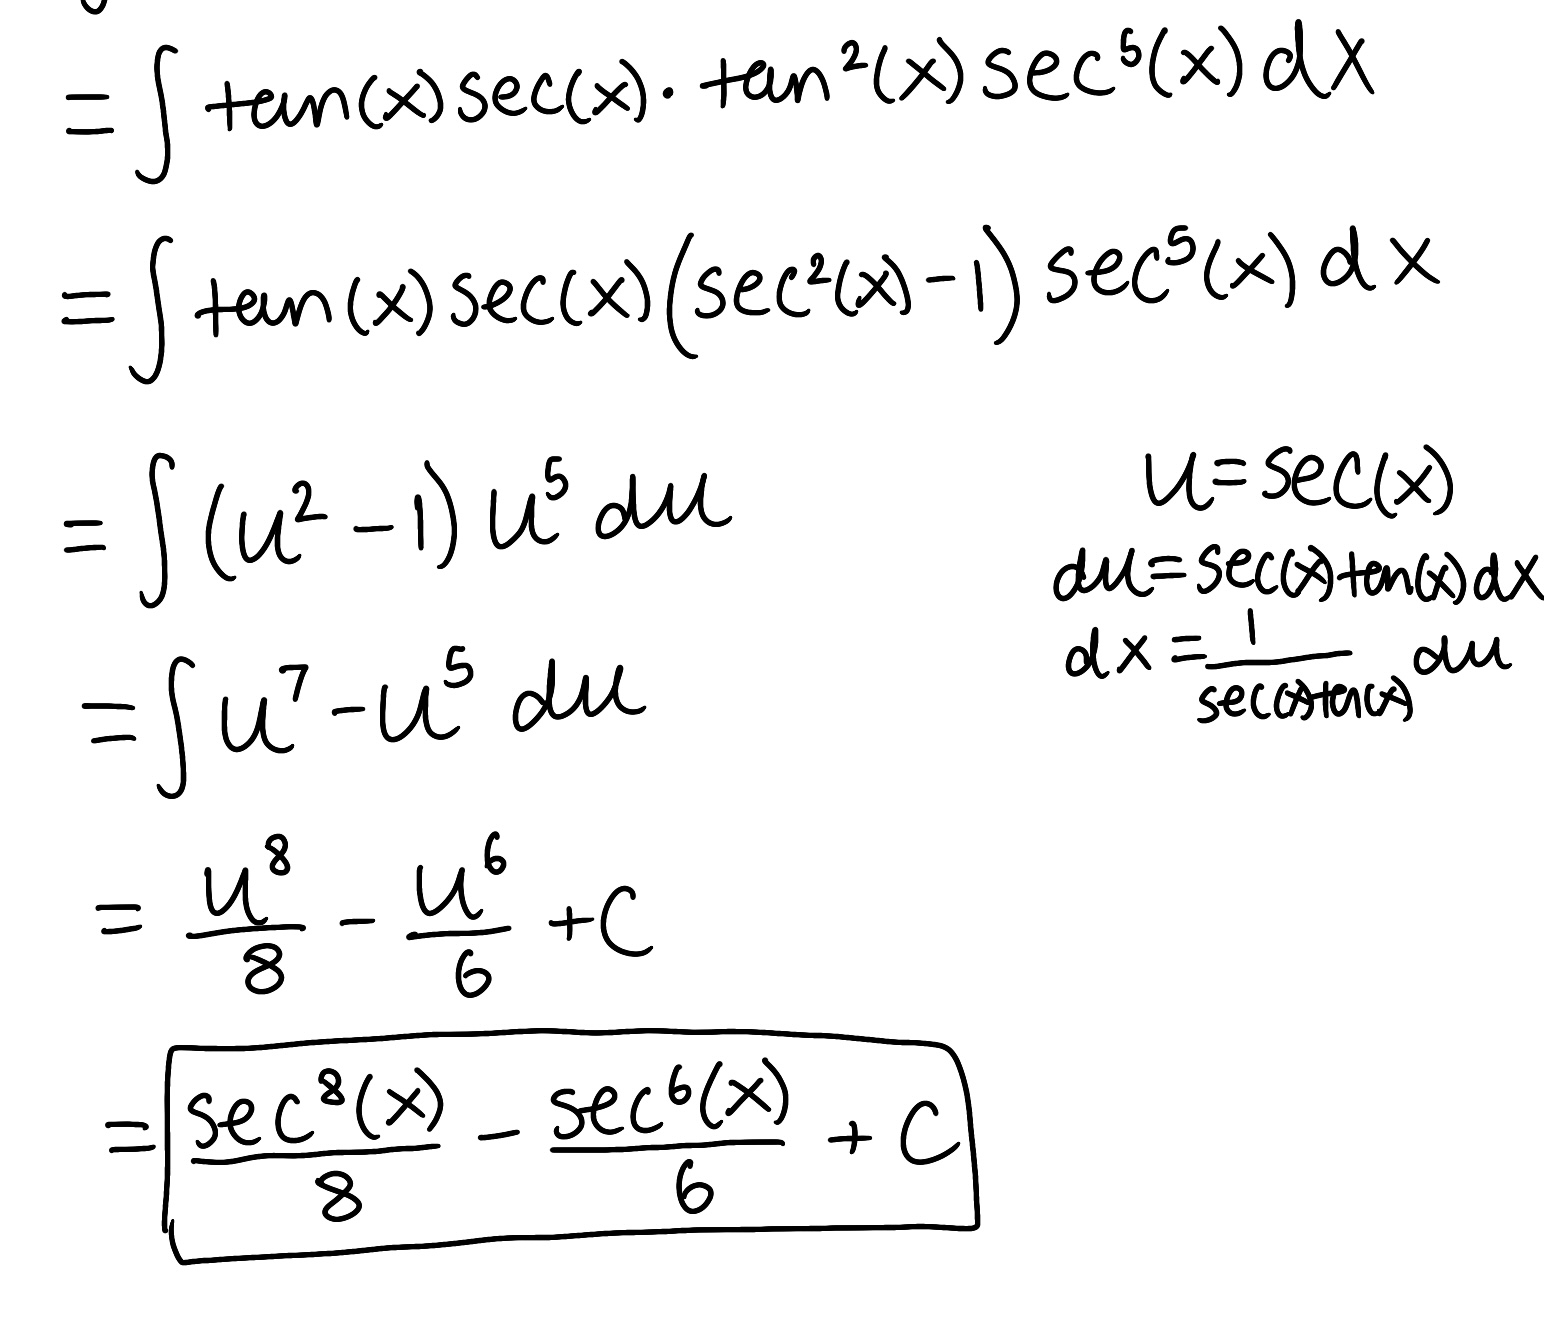 = ∫ tan(x) sec(x) · tan²(x) sec⁵(x) dx
= ∫ tan(x) sec(x) (sec²(x) - 1) sec⁵(x) dx
= ∫ (u² - 1) u⁵ du
u = sec(x)
du = sec(x) tan(x) dx
dx = 1/(sec(x) tan(x)) du
= ∫ u⁷ - u⁵ du
= u⁸/8 - u⁶/6 + C
= sec⁸(x)/8 - sec⁶(x)/6 + C